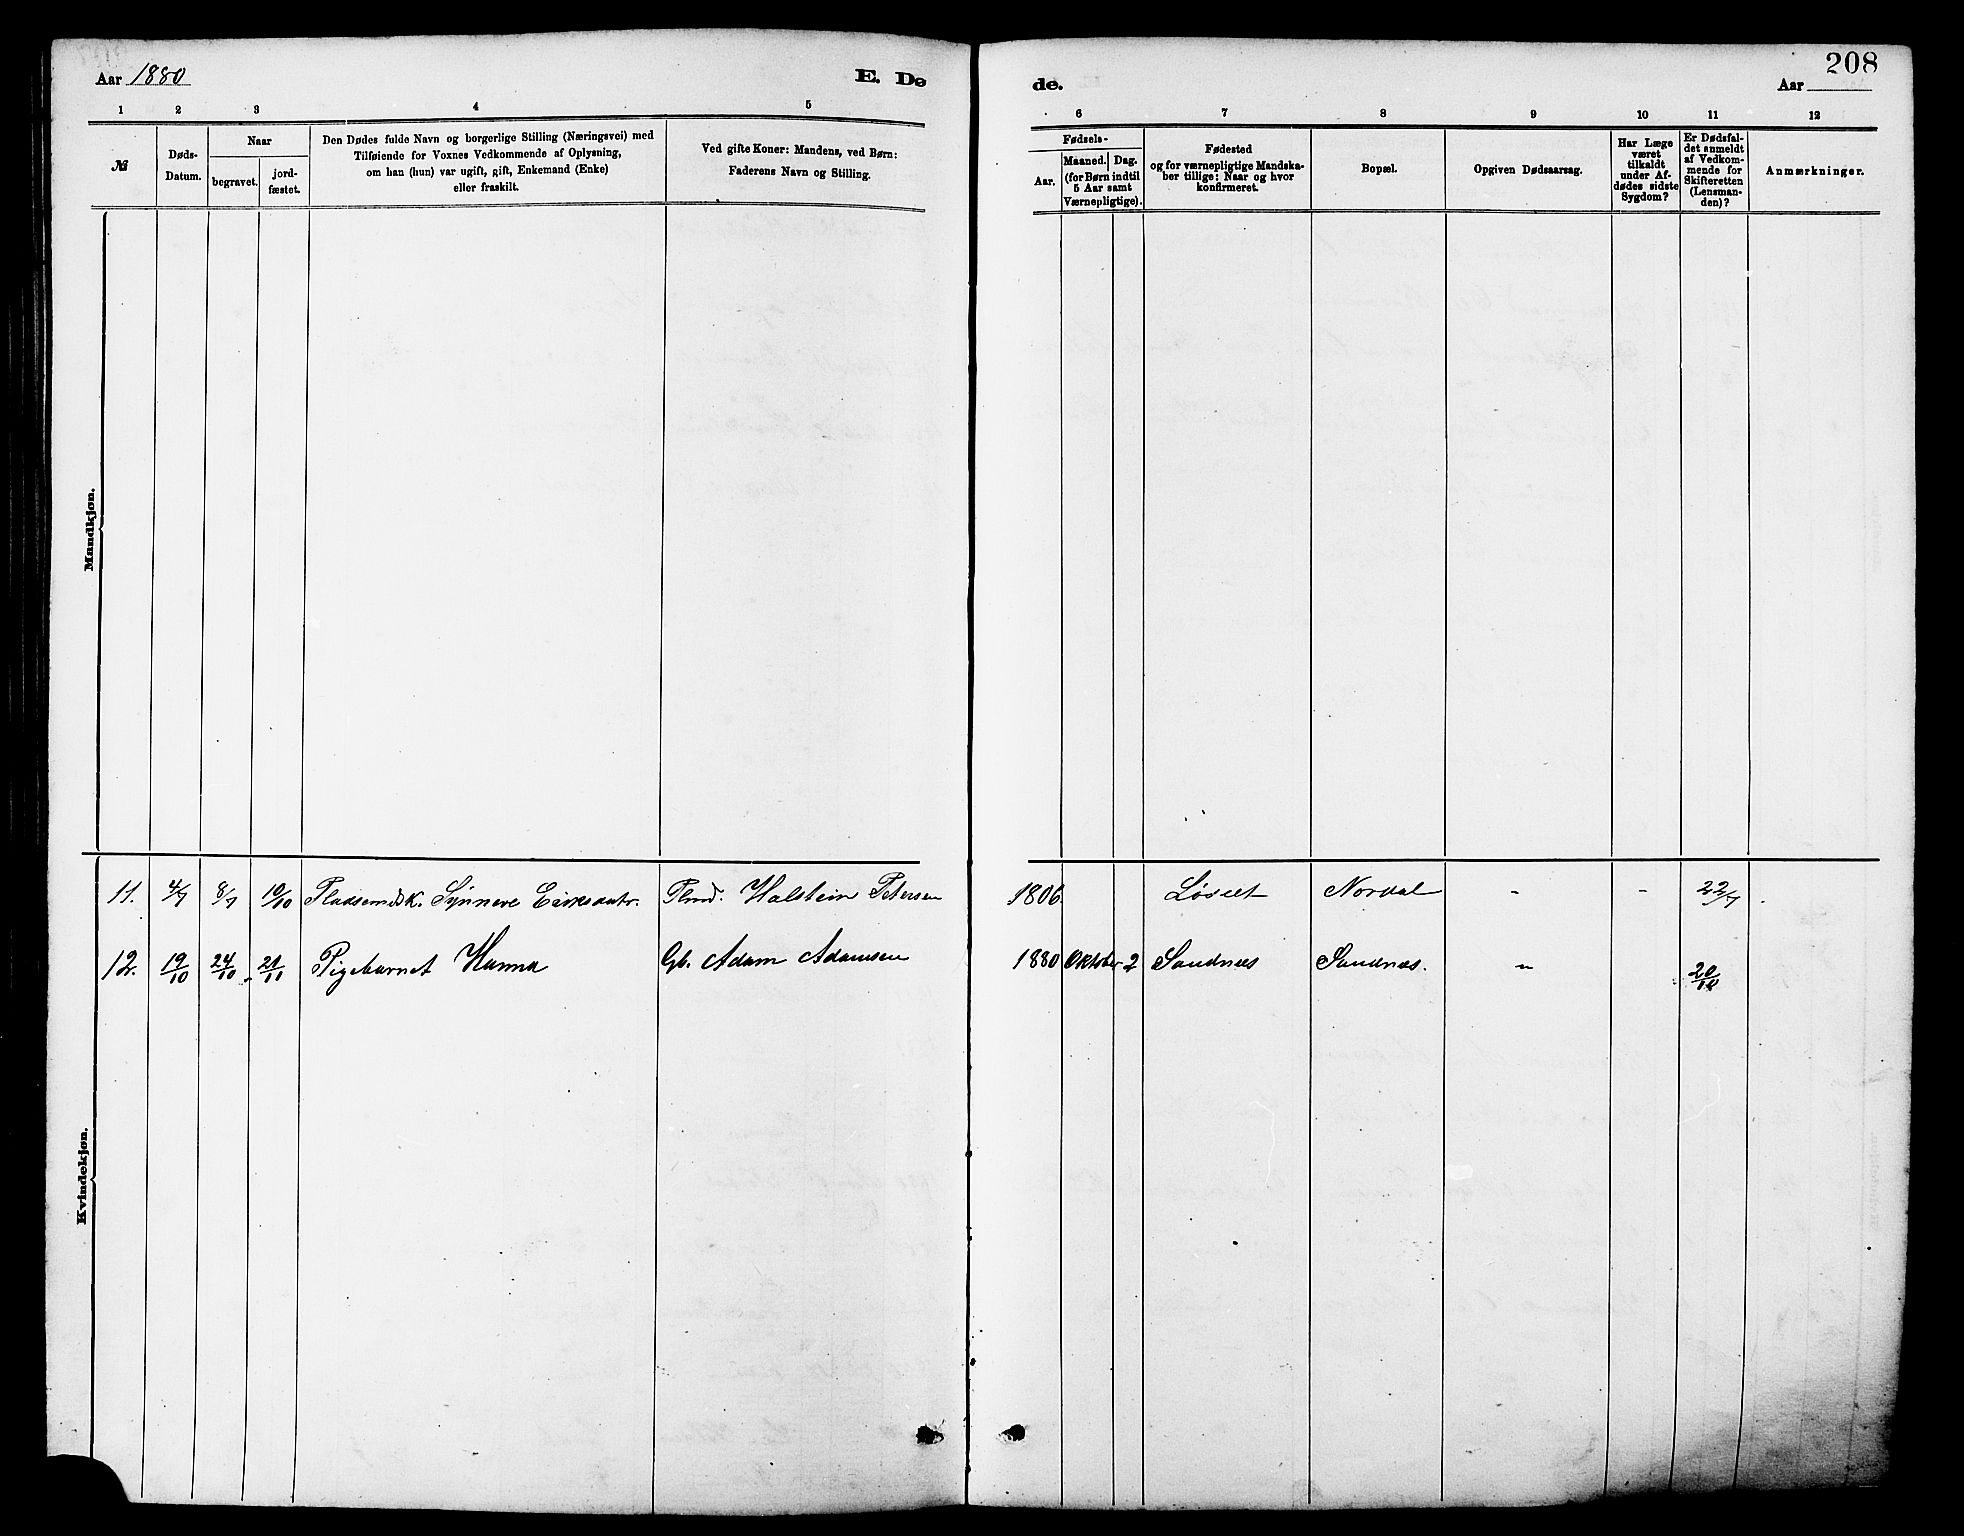 208
Aar 1880 E. Dø de. Aar
1 2 3 4 5 6 7 8 9 10 11 12
№
Døds-
Datum.
Naar
begravet.
jord-
fæstet.
Den Dødes fulde Navn og borgerlige Stilling (Næringsvei) med
Tilføiende for Voxnes Vedkommende af Oplysning,
om han (hun) var ugift, gift, Enkemand (Enke)
eller fraskilt.
Ved gifte Koner: Mandens, ved Børn:
Faderens Navn og Stilling.
Fødsels-
Aar.
Maaned. Dag.
(for Børn indtil
5 Aar samt
Værnepligtige).
Fødested
og for værnepligtige Mandska-
ber tillige: Naar og hvor
konfirmeret.
Bopæl.
Opgiven Dødsaarsag.
Har Læge
været
tilkaldt
under Af-
dødes sidste
Sygdom?
Er Dødsfal-
det anmeldt
af Vedkom-
mende for
Skifteretten
(Lensman-
den)?
Anmærkninger.
Mandkjøn.
11. 4/7 8/7 10/10 Pladsemdsk. Synneve Eriksdatr. Plmd. Halstein Petersen 1806 Løseet Nordal - - 22/7
12. 19/10 24/10 21/11 Pigebarnet Hanna Gb. Adam Adamsen 1880 Oktober 2 Sandnæs Sandnæs. - 20/10
Kvindekjøn.